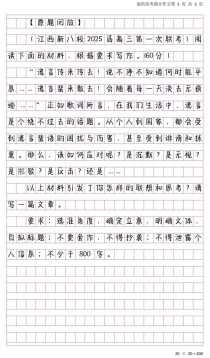 【原题回放】
（江西新八校2025届高三第一次联考）阅
读下面的材料，根据要求写作。（60分）
“谎言传来传去！说不停不知道何时能平
息……谎言蜚来散去！会随着每一天烫去无痕
迹……”正如歌词所言，在我们生活中，谎言
是个绕不过去的话题。从个人到国家，都会受
到谎言蜚语的困扰与伤害，甚至受到诽谤和抹
黑。那么，该如何应对呢？是沉默？是无视？
是形敬？是反击？还是……
以上材料引发了你怎样的联想和思考？请
写一篇文章。
要求：选准角度，确定立意，明确文体，
自拟标题；不要套作，不得抄袭；不得泄露个
人信息；不少于 800 字。
20 × 20 = 400